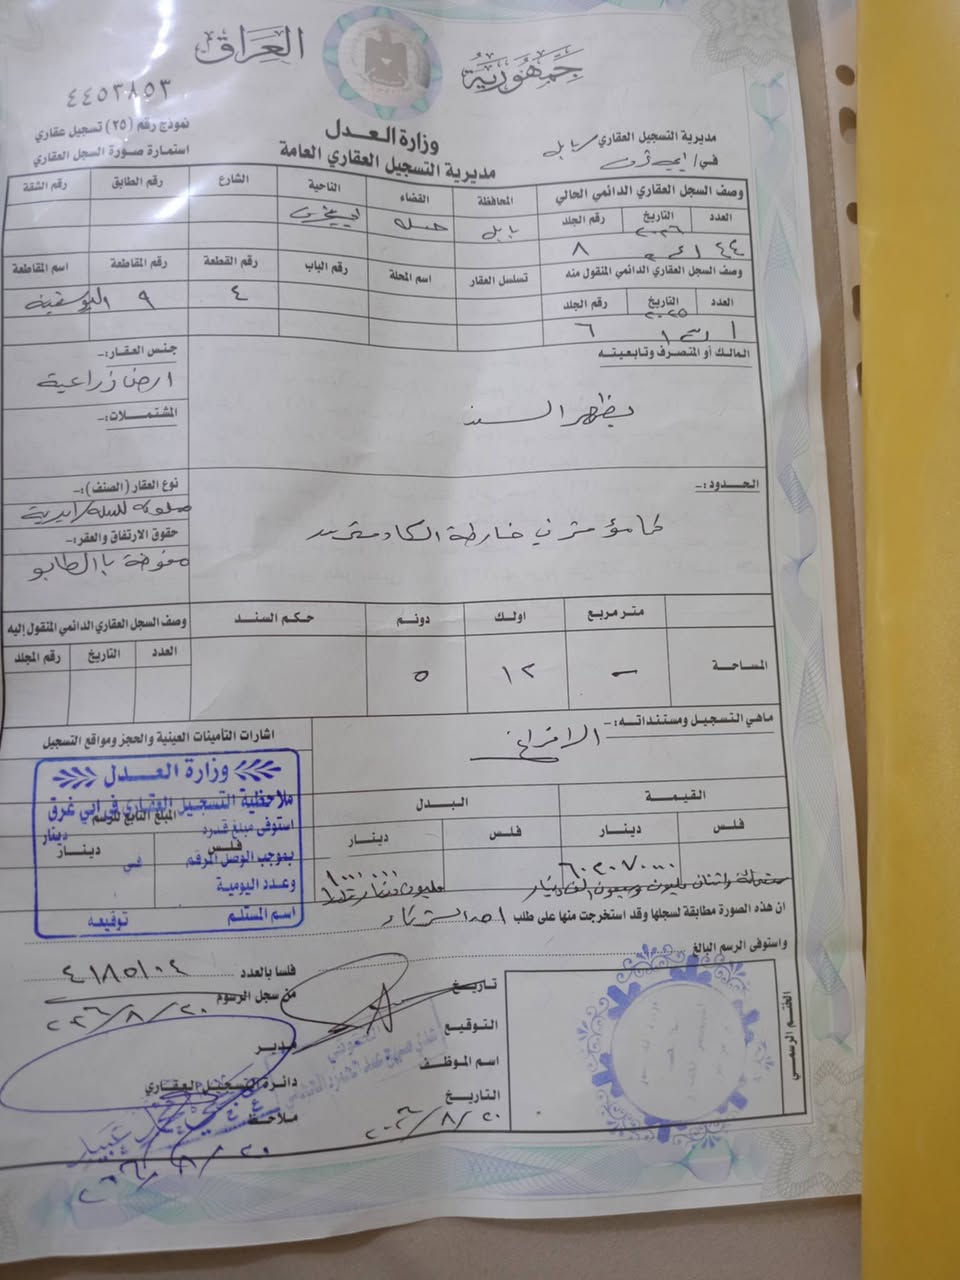 جمهورية العراق
٤٤٥٣٨٥٣
وزارة العدل
مديرية التسجيل العقاري العامة
مديرية التسجيل العقاري / بابل
في / ابي غرق
نموذج رقم (٢٥) تسجيل عقاري
استمارة صورة السجل العقاري
وصف السجل العقاري الدائمي الحالي
المحافظة القضاء الناحية الشارع رقم الطابق رقم الشقة
العدد التاريخ رقم الجلد
بابل حله ابي غرق
٤٤ ٢٠٢٦ ٨
وصف السجل العقاري الدائمي المنقول منه
تسلسل العقار اسم المحلة رقم الباب رقم القطعة رقم المقاطعة اسم المقاطعة
العدد التاريخ رقم الجلد
٤ ٩ اليوسفية
١ ٢٠٢٥ ٦
المالك أو المتصرف وتابعيته
يظهر السند
جنس العقار:-
ارض زراعية
المشتملات:-
الحدود:-
كما مؤشر في خارطة الكادسترو
نوع العقار (الصنف):-
مملوكة للدولة
حقوق الارتفاق والعقر:-
مفوضة بالطابو
متر مربع اولك دونم حكم السند وصف السجل العقاري الدائمي المنقول إليه
العدد التاريخ رقم المجلد
المساحة - ١٢ ٥
ماهي التسجيل ومستنداته:-
الافراغ
اشارات التأمينات العينية والحجز ومواقع التسجيل
القيمة البدل المبلغ التابع للرسم
فلس دينار فلس دينار فلس دينار
٦٠٢٠٧٠٠٠٠
مليون دينار
وزارة العدل
ملاحظية التسجيل العقاري في ابي غرق
استوفى مبلغ قدره دينار
بموجب الوصل المرقم في
وعدد اليومية
اسم المستلم توقيعه
ان هذه الصورة مطابقة لسجلها وقد استخرجت منها على طلب احد الشركاء
واستوفى الرسم البالغ
فلسا بالعدد ٤١٨٥١٠٤
من سجل الرسوم ٢٠٢٦/٨/٢٠
تاريخ
التوقيع
اسم الموظف
التاريخ ٢٠٢٦/٨/٢٠
مدير
دائرة التسجيل العقاري
ملاحظ
٢٠٢٦/٨/٢٠
الختم الرسمي